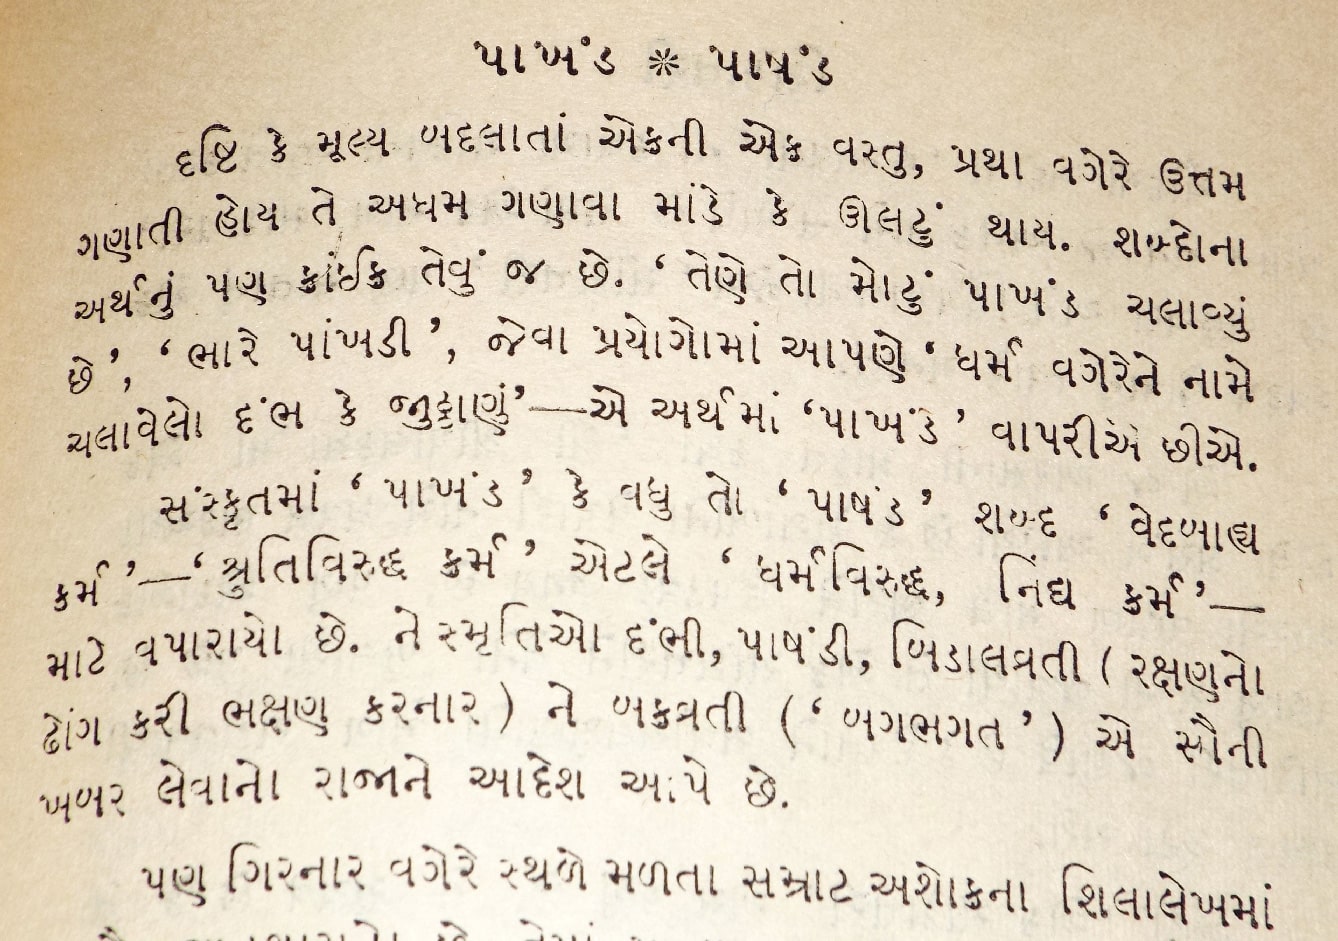 પાખંડ * પાષંડ
દૃષ્ટિ કે મૂલ્ય બદલાતાં એકની એક વસ્તુ, પ્રથા વગેરે ઉત્તમ
ગણાતી હોય તે અધમ ગણાવા માંડે કે ઊલટું થાય. શબ્દોના
અર્થનું પણ કાંઈક તેવું જ છે. ‘ તેણે તો મોટું પાખંડ ચલાવ્યું
છે’, ‘ ભારે પાંખડી ’, જેવા પ્રયોગોમાં આપણે ‘ ધર્મ વગેરેને નામે
ચલાવેલો દંભ કે જુઠ્ઠાણું’—એ અર્થમાં ‘પાખંડ ’ વાપરીએ છીએ.
સંસ્કૃતમાં ‘ પાખંડ ’ કે વધુ તો ‘ પાષંડ ’ શબ્દ ‘ વેદબાહ્ય
કર્મ ’—‘ શ્રુતિવિરુદ્ધ કર્મ ’ એટલે ‘ ધર્મવિરુદ્ધ, નિંદ્ય કર્મ ’—
માટે વપરાયો છે. ને સ્મૃતિઓ દંભી, પાષંડી, બિડાલવ્રતી ( રક્ષણનો
ઢોંગ કરી ભક્ષણ કરનાર ) ને બકવ્રતી ( ‘ બગભગત ’ ) એ સૌની
ખબર લેવાનો રાજાને આદેશ આપે છે.
પણ ગિરનાર વગેરે સ્થળે મળતા સમ્રાટ અશોકના શિલાલેખમાં